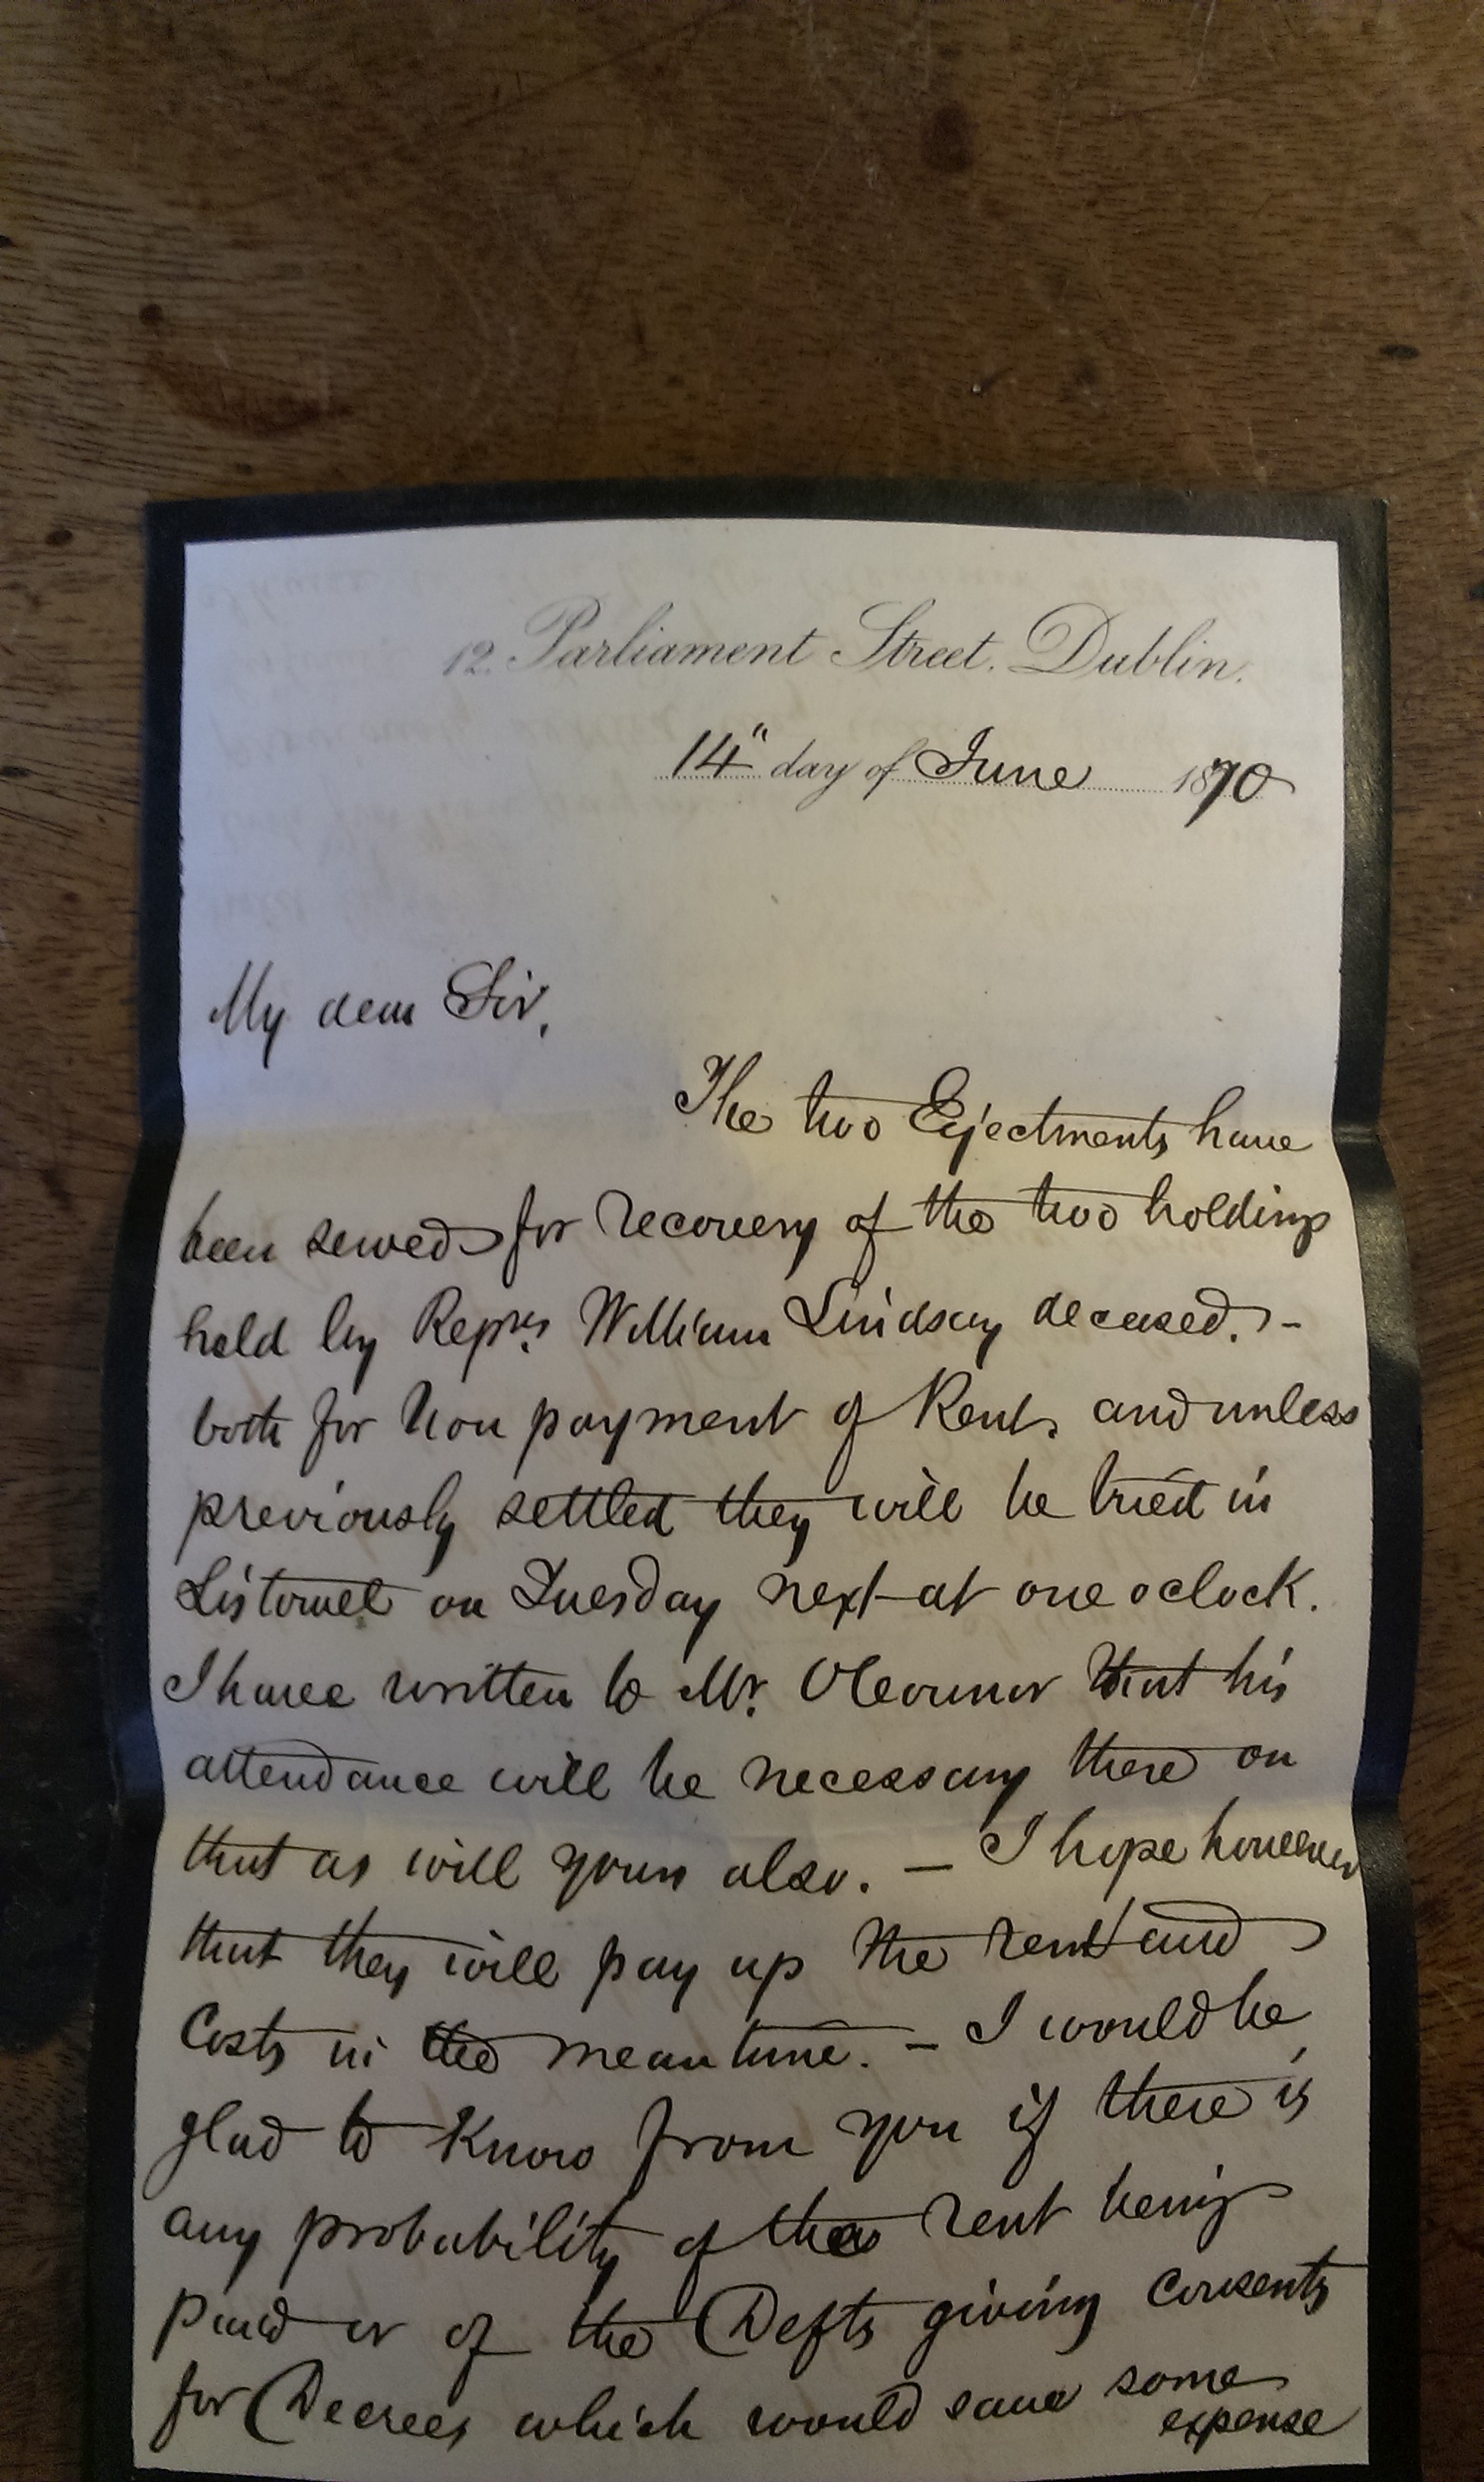 12. Parliament Street. Dublin.
14" day of June 1870
My dear Sir,
The two Ejectments have
been served for recovery of the two holdings
held by Reprs. William Lindsay deceased. -
both for Non payment of Rent, and unless
previously settled they will be tried in
on Tuesday next at one oclock.
I have written to Mr. OConnor that his
attendance will be necessary there on
that as will yours also. - I hope however
that they will pay up the rent and
Costs in the meantime. - I would be
glad to Know from you if there is
any probability of the rent being
paid or of the Defts giving Consents
for Decrees which would save some
expense